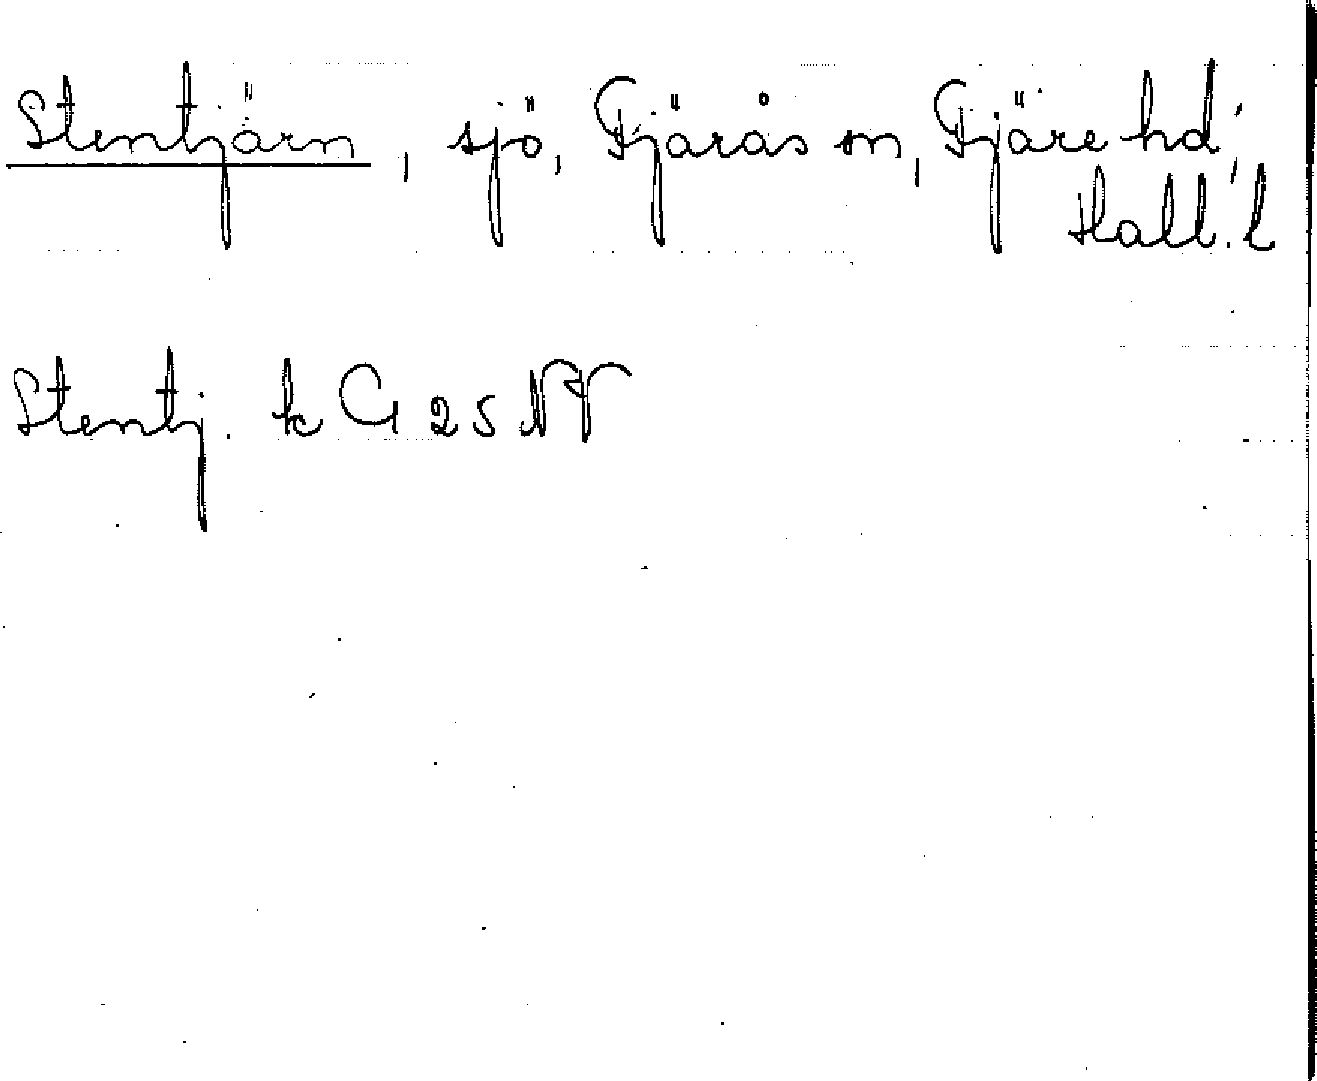 Stentjärn, sjö, Fjärås sn, Fjäre hd,
Hall. l
Stentj. k G 25 NV